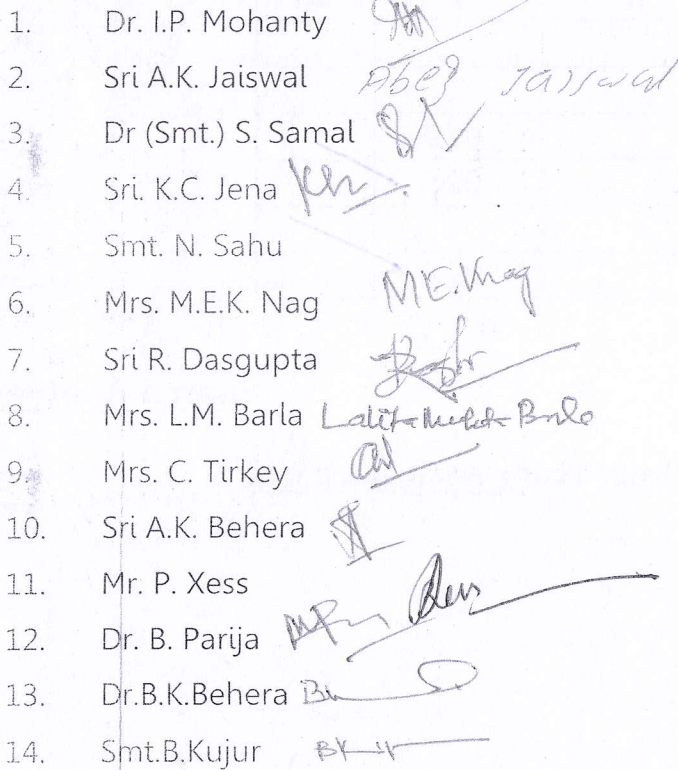 1. Dr. I.P. Mohanty
2. Sri A.K. Jaiswal Jaiswal
3. Dr (Smt.) S. Samal
4. Sri. K.C. Jena
5. Smt. N. Sahu
6. Mrs. M.E.K. Nag M.E.K.nag
7. Sri R. Dasgupta
8. Mrs. L.M. Barla Lalita
9. Mrs. C. Tirkey
10. Sri A.K. Behera
11. Mr. P. Xess
12. Dr. B. Parija
13. Dr.B.K.Behera
14. Smt.B.Kujur